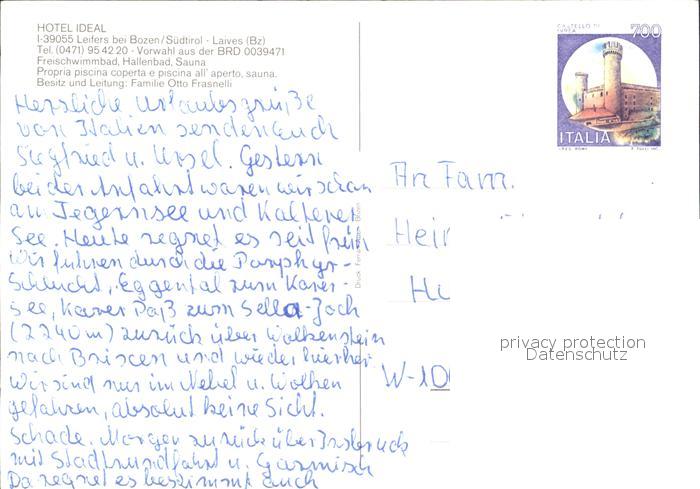 HOTEL IDEAL
I-39055 Leifers bei Bozen/Südtirol - Laives (Bz)
Tel. (0471) 95 42 20 - Vorwahl aus der BRD 0039471
Freischwimmbad, Hallenbad, Sauna
Propria piscina coperta e piscina all' aperto, sauna.
Besitz und Leitung: Familie Otto Frasnelli
CASTELLO DI IVREA
700
ITALIA
Herzliche Urlaubsgrüße
von Italien senden euch
Siegfried u. Ursel. Gestern
bei der Anfahrt waren wir schon
am Tegernsee und Kalterer
See. Heute regnet es seit früh
Wir fuhren durch die Porphyr-
Schlucht, Eggental zum Karer-
see, Karer Paß zum Sella-Joch
(2240m) zurück über Wolkenstein
nach Brixen und wieder hierher
Wir sind nur im Nebel u. Wolken
gefahren, absolut keine Sicht.
Schade. Morgen zurück über Innsbruck
mit Stadtrundfahrt u. Garmisch
Da regnet es bestimmt auch
An Fam.
Hei
W-10
privacy protection
Datenschutz